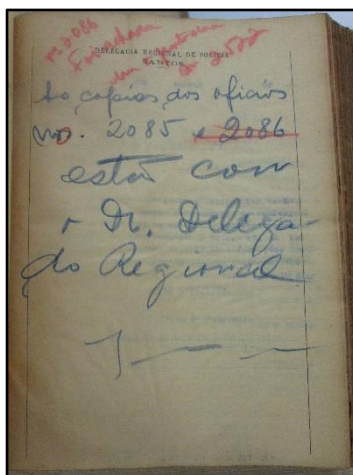 n. 2086
DELEGACIA REGIONAL DE POLICIA
SANTOS
As copias dos oficios
nos. 2085 e 2086
estão com
o Dr. Delega-
do Regional